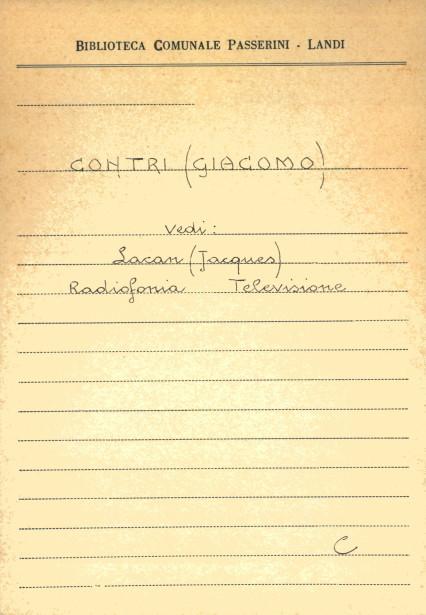 BIBLIOTECA COMUNALE PASSERINI - LANDI
CONTRI (GIACOMO)
Vedi:
Lacan (Jacques)
Radiofonia Televisione
C